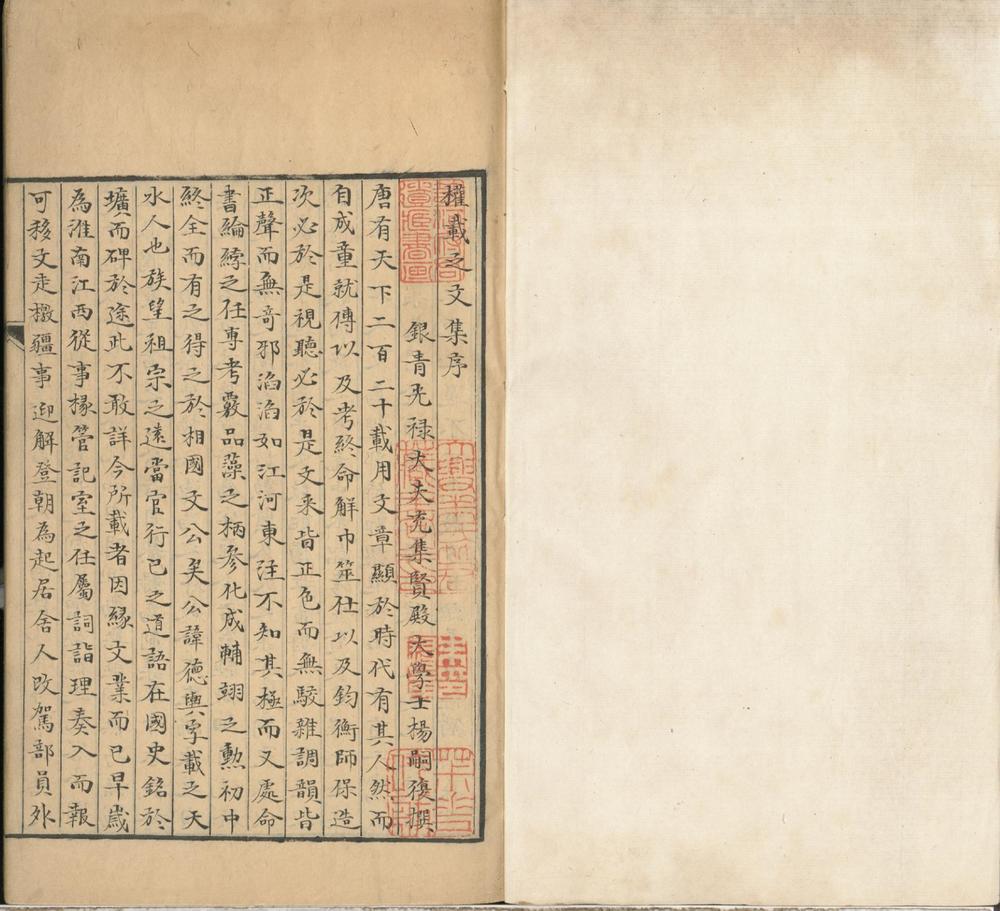 權載之文集序
銀青光祿大夫充集賢殿大學士楊嗣復撰
唐有天下二百二十載用文章顯於時代有其人然而
自成童就傅以及考終命解巾筮仕以及鈞衡師保造
次必於是視聽必於是文采皆正色而無駁雜調韻皆
正聲而無奇邪滔滔如江河東注不知其極而又處命
書綸綍之任專考覈品藻之柄參化成輔翊之勲初中
終全而有之得之於相國文公矣公諱德輿字載之天
水人也族望祖宗之遠當官行已之道語在國史銘於
壙而碑於途此不敢詳今所載者因緣文業而已早歲
為淮南江西從事掾管記室之任屬詞詣理奏入而報
可移文走檄疆事迎解登朝為起居舍人改駕部員外